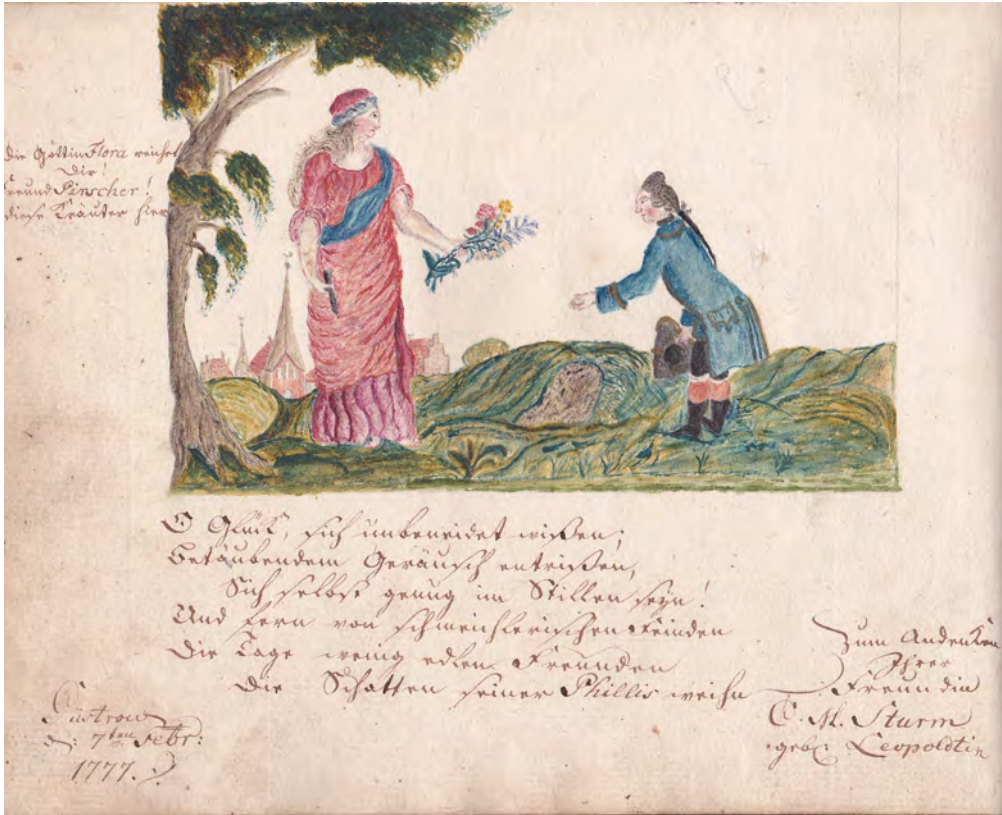 Die Göttin Flora reichet
Dir!
Freund Pinscher!
diese Kräuter hier
O Glück, sich unbeneidet wißen;
Betäubendem Geräusch entrißen,
Sich selbst genug im Stillen seyn!
Und fern von schmeichlerischen Feinden
Die Tage wenig edlen Freunden
Die Schatten seiner Phillis weihn
Zum Andenken
Ihrer
Freundin
C. M. Sturm
geb: Leopoldtin
Güstrow
d: 7ten Febr:
1777.